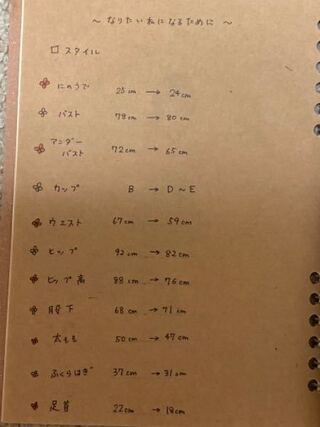 〜 なりたい私になるために 〜
□ スタイル
にのうで 25cm → 24cm
バスト 79cm → 80cm
アンダー
バスト 72cm → 65cm
カップ B → D〜E
ウエスト 67cm → 59cm
ヒップ 92cm → 82cm
ヒップ高 88cm → 76cm
股下 68cm → 71cm
太もも 50cm → 47cm
ふくらはぎ 37cm → 31cm
足首 22cm → 18cm